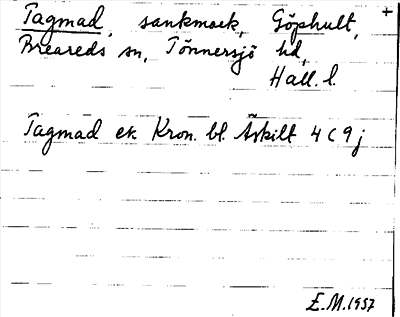 Tagmad, sankmark, Göphult, +
Breareds sn, Tönnersjö hd,
Hall. l.
Tagmad ek. Kron. bl. Äskilt 4 C 9 j
E.M. 1957